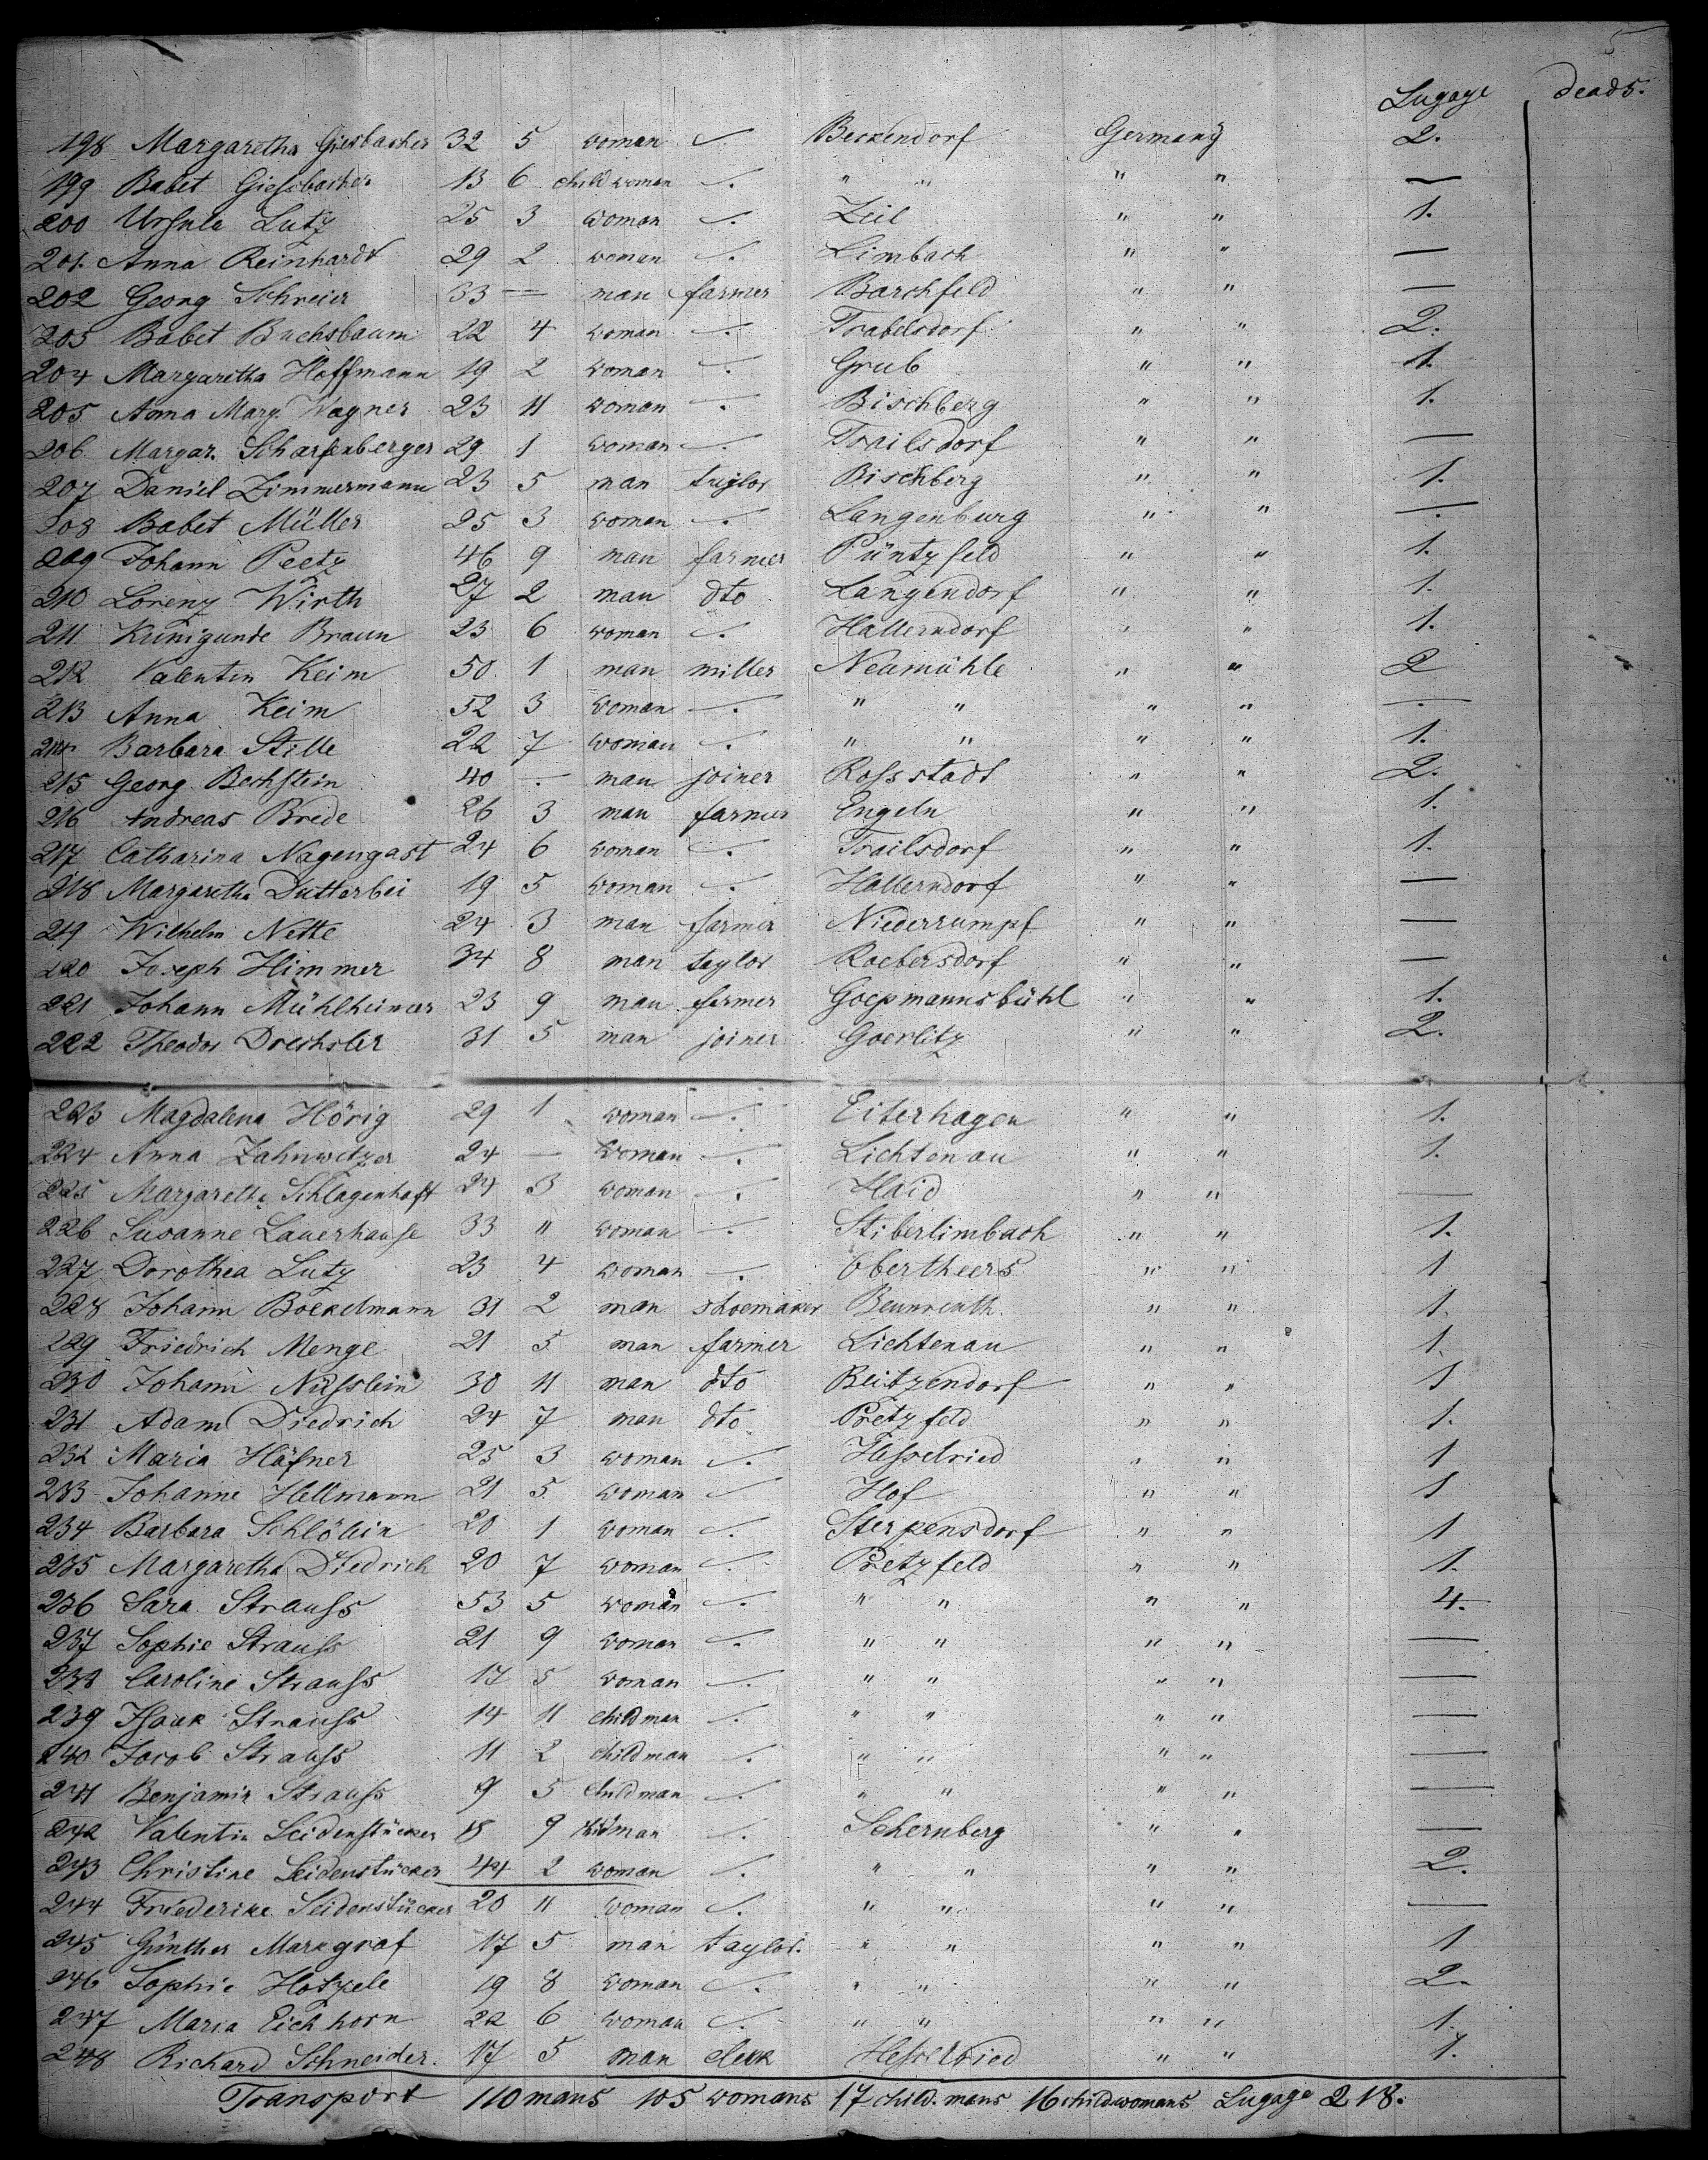 5
Lugage deads.
198 Margaretha Giesbacher 32 5 woman —. Beckendorf Germany 2.
199 Babet Giessbacher 13 6 child woman —. " " " " —
200 Ursula Lutz 25 3 woman —. Zeil " " 1.
201. Anna Reinhardt 29 2 woman —. Limbach " " —
202 Georg Schreier 33 — man farmer Barchfeld " " —
203 Babet Buchsbaum 22 4 woman —. Trabelsdorf " " 2.
204 Margaretha Hoffmann 19 2 woman —. Grub " " 1.
205 Anna Marg. Wagner 23 11 woman —. Bischberg " " 1.
206 Margar. Scharfenberger 29 1 woman —. Trailsdorf " " —
207 Daniel Zimmermann 23 5 man taylor Bischberg " " 1.
208 Babet Müller 25 3 woman —. Langenburg " " —.
209 Johann Peetz 46 9 man farmer Püntzfeld " " 1.
210 Lorenz Wirth 27 2 man dto Langendorf " " 1.
211 Kunigunde Braun 23 6 woman —. Hallerndorf " " 1.
212 Valentin Keim 50 1 man miller Neumühle " " 2
213 Anna Keim 52 3 woman —. " " " " —.
214 Barbara Stille 22 7 woman —. " " " " 1.
215 Georg Bechstein 40 —. man joiner Rossstadt " " 2.
216 Andreas Brede 26 3 man farmer Engeln " " 1.
217 Catharina Nagengast 24 6 woman —. Trailsdorf " " 1.
218 Margaretha Dutterbei 19 5 woman —. Hallerndorf " " —
219 Wilhelm Nette 24 3 man farmer Niederrumpf " " —
220 Joseph Himmer 34 8 man taylor Roebersdorf " " —
221 Johann Mühlheimer 23 9 man farmer Goepmannsbühl " " 1.
222 Theodor Drechsler 31 5 man joiner Goerlitz " " 2.
223 Magdalena Hörig 29 1 woman —. Eiterhagen " " 1.
224 Anna Zahnwetzer 24 — woman —. Lichtenau " " 1.
225 Margaretha Schlagenhaft 24 3 woman —. Haid " " —
226 Susanne Lauerhause 33 " woman —. Stiberlimbach " " 1.
227 Dorothea Lutz 23 4 woman —. Obertheers " " 1
228 Johann Boekelmann 31 2 man shoemaker Beunreuth " " 1.
229 Friedrich Menge 21 5 man farmer Lichtenau " " 1.
230 Johann Nüsslein 30 11 man dto Reitzendorf " " 1
231 Adam Diedrich 24 7 man dto Pretzfeld " " 1.
232 Maria Häfner 25 3 woman —. Hesselried " " 1
233 Johanne Hellmann 21 5 woman — Hof " " 1
234 Barbara Schlölein 20 1 woman —. Sterpensdorf " " 1
235 Margaretha Diedrich 20 7 woman —. Pretzfeld " " 1.
236 Sara Strauss 53 5 woman —. " " " " 4.
237 Sophie Strauss 21 9 woman —. " " " " —
238 Caroline Strauss 17 5 woman —. " " " " —
239 Isaak Strauss 14 11 child man —. " " " " —
240 Jacob Strauss 11 2 child man —. " " " " —
241 Benjamin Strauss 9 5 child man —. " " " " —
242 Valentin Seidenstücker 18 9 man —. Schernberg " " —
243 Christine Seidenstücker 44 2 woman —. " " " " 2.
244 Friederike Seidenstücker 20 11 woman —. " " " " —
245 Günther Markgraf 17 5 man taylor. " " " " 1
246 Sophie Hotzele 19 8 woman —. " " " " 2.
247 Maria Eichhorn 22 6 woman —. " " " " 1.
248 Richard Schneider. 17 5 man clerk Hesselried " " 1.
Transport 110 mans 105 womans 17 child. mans 16 child womans Lugage 218.